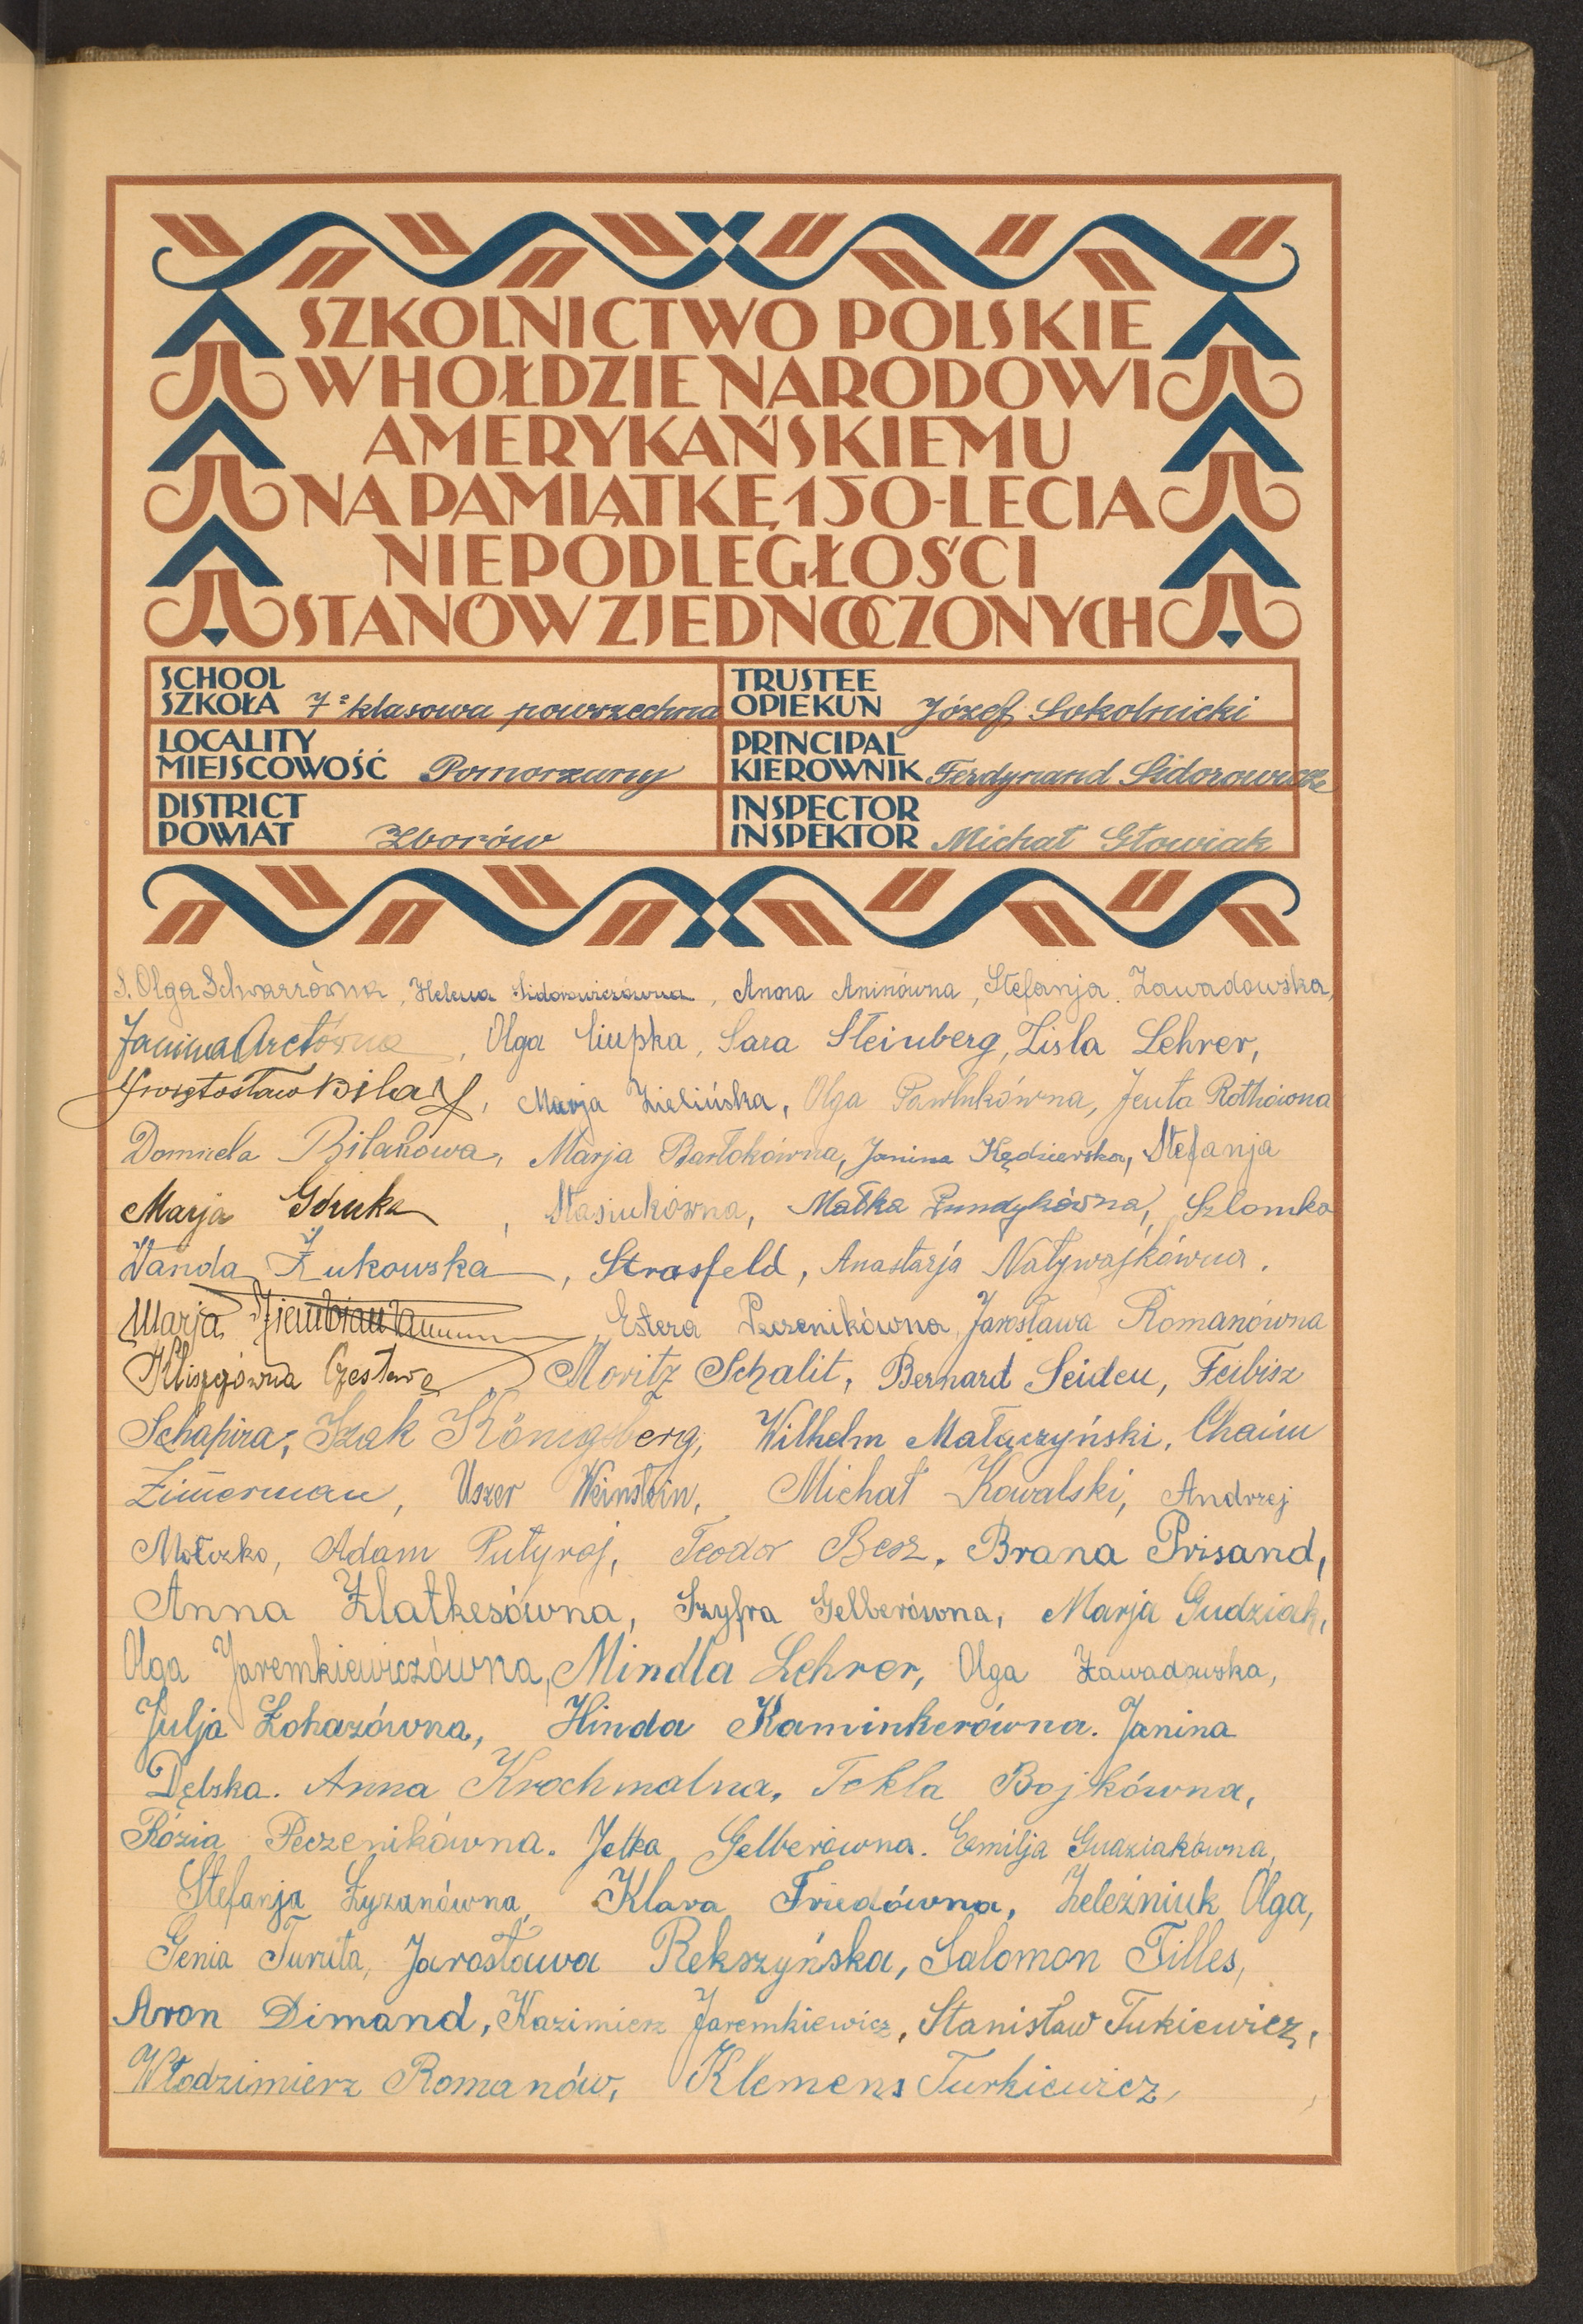 SZKOLNICTWO POLSKIE
W HOŁDZIE NARODOWI
AMERYKAŃSKIEMU
NA PAMIĄTKĘ 150-LECIA
NIEPODLEGŁOŚCI
STANÓW ZJEDNOCZONYCH
SCHOOL
SZKOŁA 7º klasowa powszechna
TRUSTEE
OPIEKUN Józef Sokolnicki
LOCALITY
MIEJSCOWOŚĆ Pomorzany
PRINCIPAL
KIEROWNIK Ferdynand Sidorowicz
DISTRICT
POWIAT Zborów
INSPECTOR
INSPEKTOR Michał Głowiak
S. Olga Schwarzówna, Helena Sidorowiczówna, Anna Aninówna, Stefanja Zawadowska,
Janina Arctówna, Olga Ciupka, Sara Steinberg, Zisla Lehrer,
Świętosław Bilań, Marja Zielińska, Olga Pawlukówna, Jenta Rothówna
Domicela Bilańowa, Marja Bartokówna, Janina Kędzierska, Stefanja
Marja Góruka, Stasiukówna, Małka Pundykówna, Szlomko
Wanda Żukowska, Strasfeld, Anastazja Natywajkówna.
Marja, Estera Peczenikówna, Jarosława Romanówna
Kliszgówna Czesława, Moritz Schalit, Bernard Seiden, Feibisz
Schapira, Izak Königsberg, Wilhelm Małaczyński, Chaim
Zimerman, Uszer Weinstein, Michał Kowalski, Andrzej
Mołczko, Adam Putyraj, Teodor Besz, Brana Prisand,
Anna Zlatkesówna, Szyfra Gelberówna, Marja Gudziak,
Olga Jaremkiewiczówna, Mindla Lehrer, Olga Zawadowska,
Julja Łohazówna, Hinda Kaminkerówna. Janina
Dębska. Anna Krochmalna, Tekla Bojkówna,
Rózia Peczenikówna. Jetka Gelberówna. Emilja Gudziakówna,
Stefanja Łyzanówna, Klara Friedówna, Żeleźniuk Olga,
Genia Tunita, Jarosława Rekszyńska, Salomon Tilles,
Aron Dimand, Kazimierz Jaremkiewicz, Stanisław Tukiewicz,
Włodzimierz Romanów, Klemens Turkiewicz,